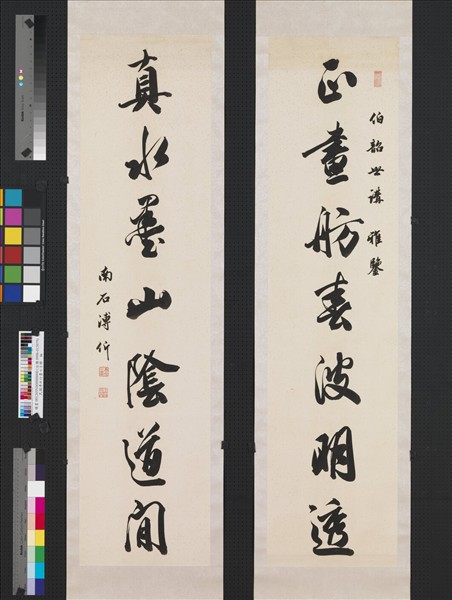 正畫舫春波明透
伯韶世講 雅鑒
真水墨山陰道間
南石溥伒